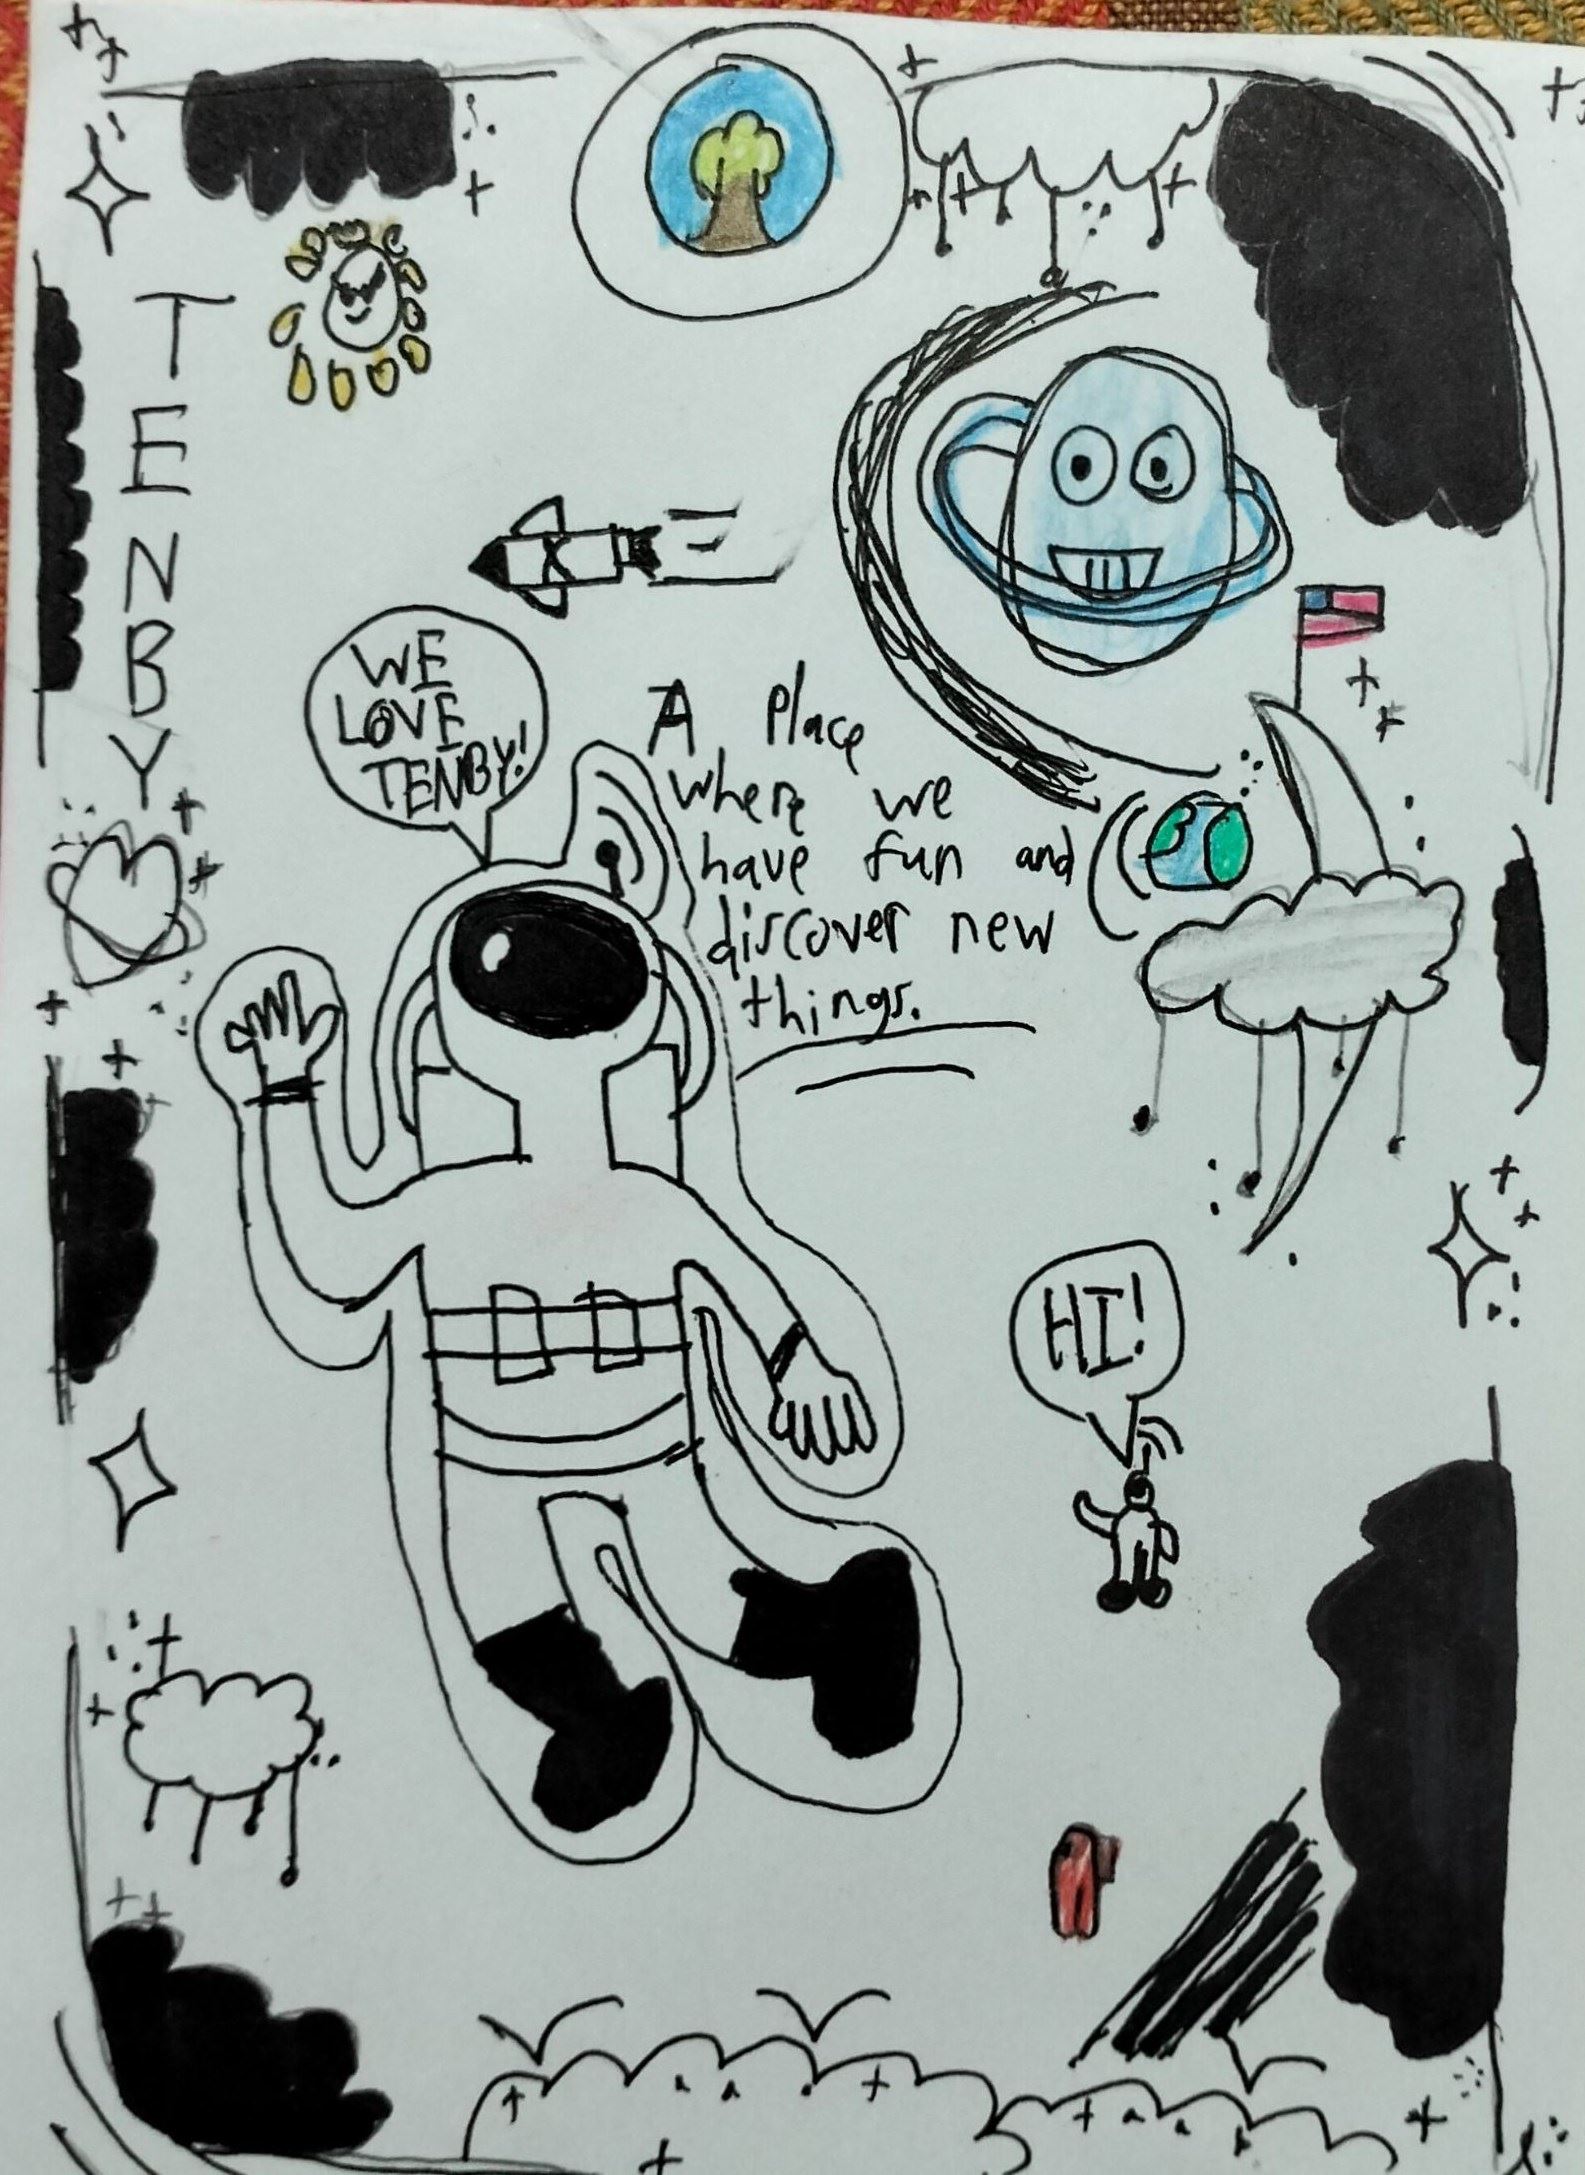 TENBY
WE
LOVE
TENBY!
A Place
where we
have fun and
discover new
things.
HI!